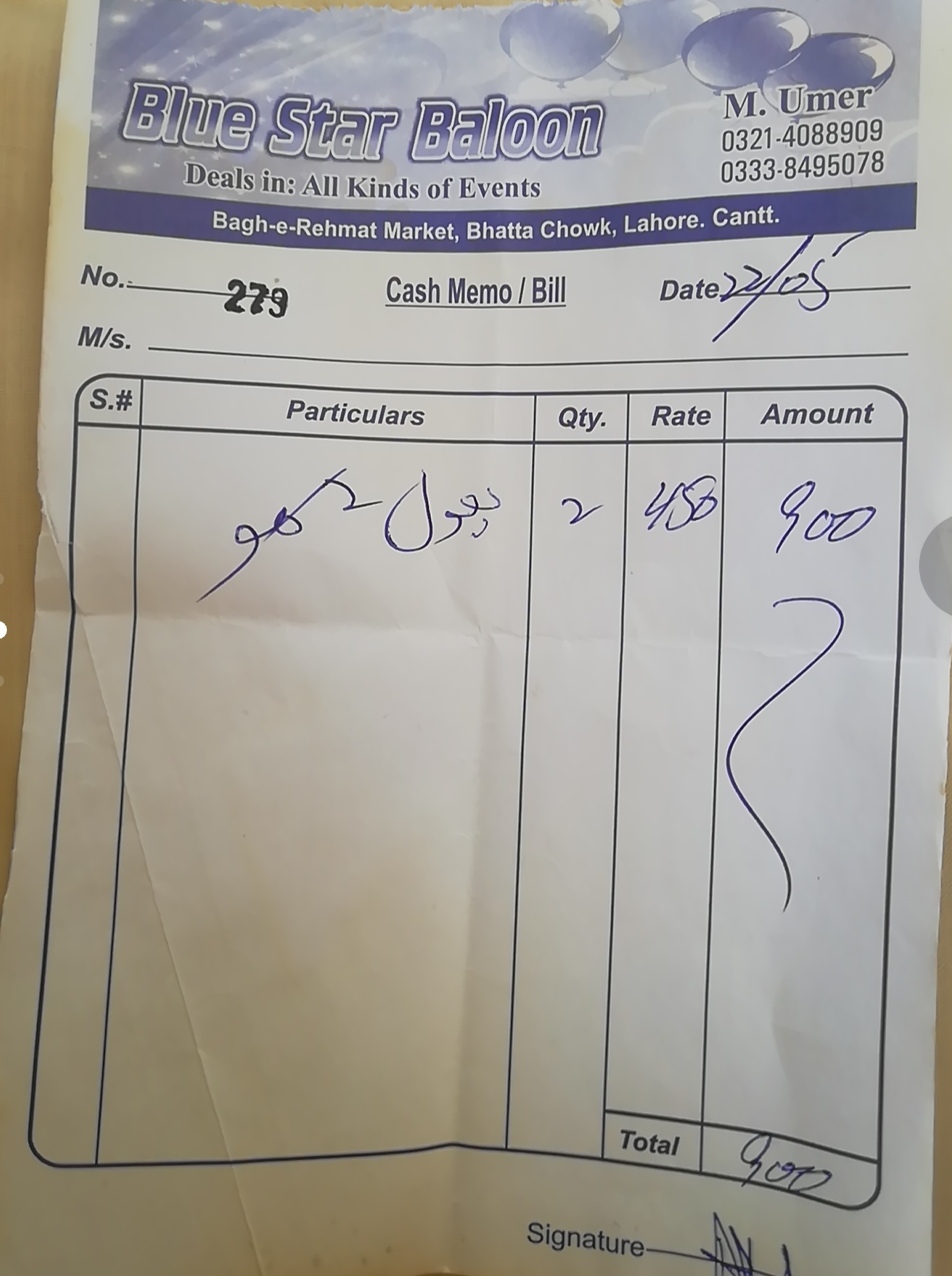 Blue Star Baloon
Deals in: All Kinds of Events
M. Umer
0321-4088909
0333-8495078
Bagh-e-Rehmat Market, Bhatta Chowk, Lahore. Cantt.
No. 279 Cash Memo / Bill Date 22/05
M/s.
S.# Particulars Qty. Rate Amount
2 450 900
Total 900
Signature